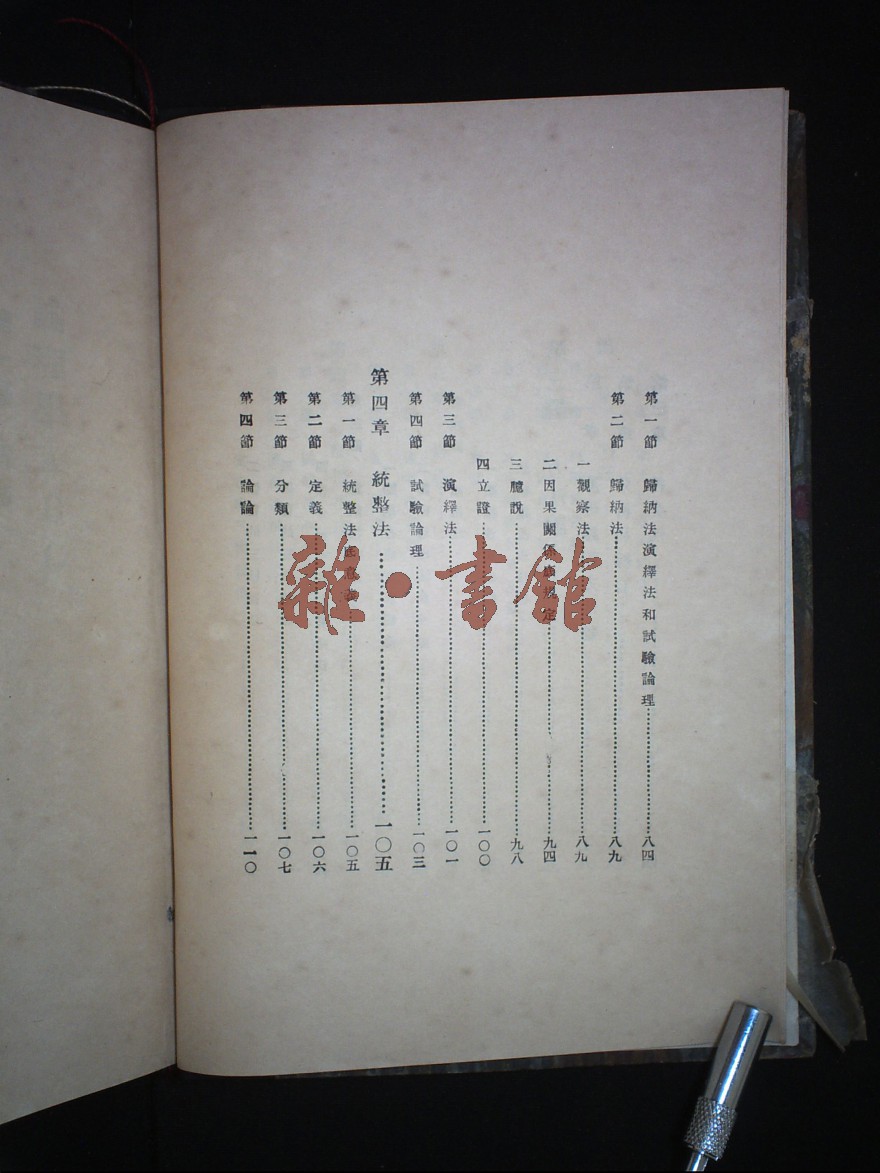 第一節 歸納法演繹法和試驗論理……八四
第二節 歸納法……八九
一觀察法……八九
二因果關係定……九四
三臆說……九八
四立證……一〇〇
第三節 演繹法……一〇一
第四節 試驗論理……一〇三
第四章 統整法……一〇五
第一節 統整法……一〇五
第二節 定義……一〇六
第三節 分類……一〇七
第四節 論論……一一〇
雜·書館